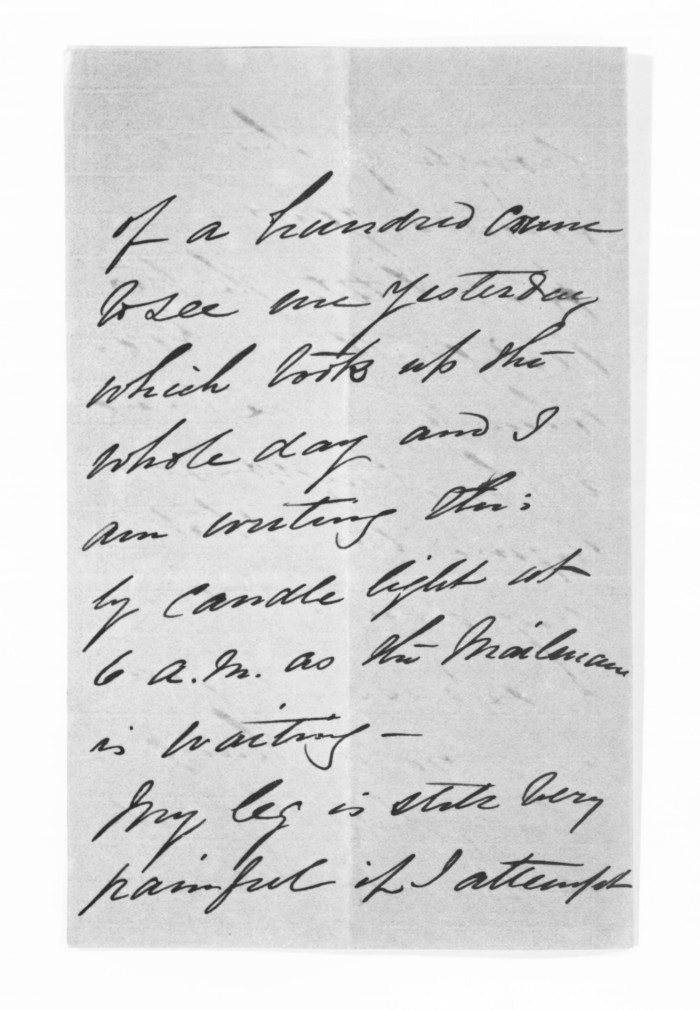 of a hundred came
to see me yesterday
which took up the
whole day and I
am writing this
by candle light at
6 a.m. as the Mailman
is waiting —
My leg is still very
painful if I attempt